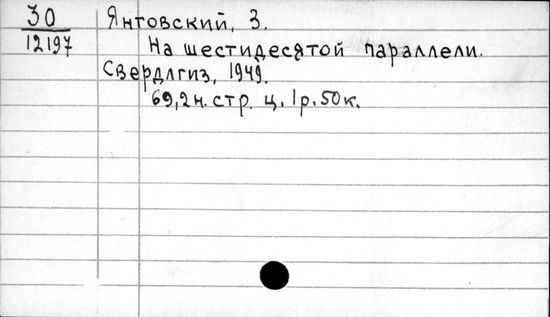 30 Янтовский, З.
12197 На шестидесятой параллели.
Свердлгиз, 1949.
69,2н. стр. ц. 1р. 50к.